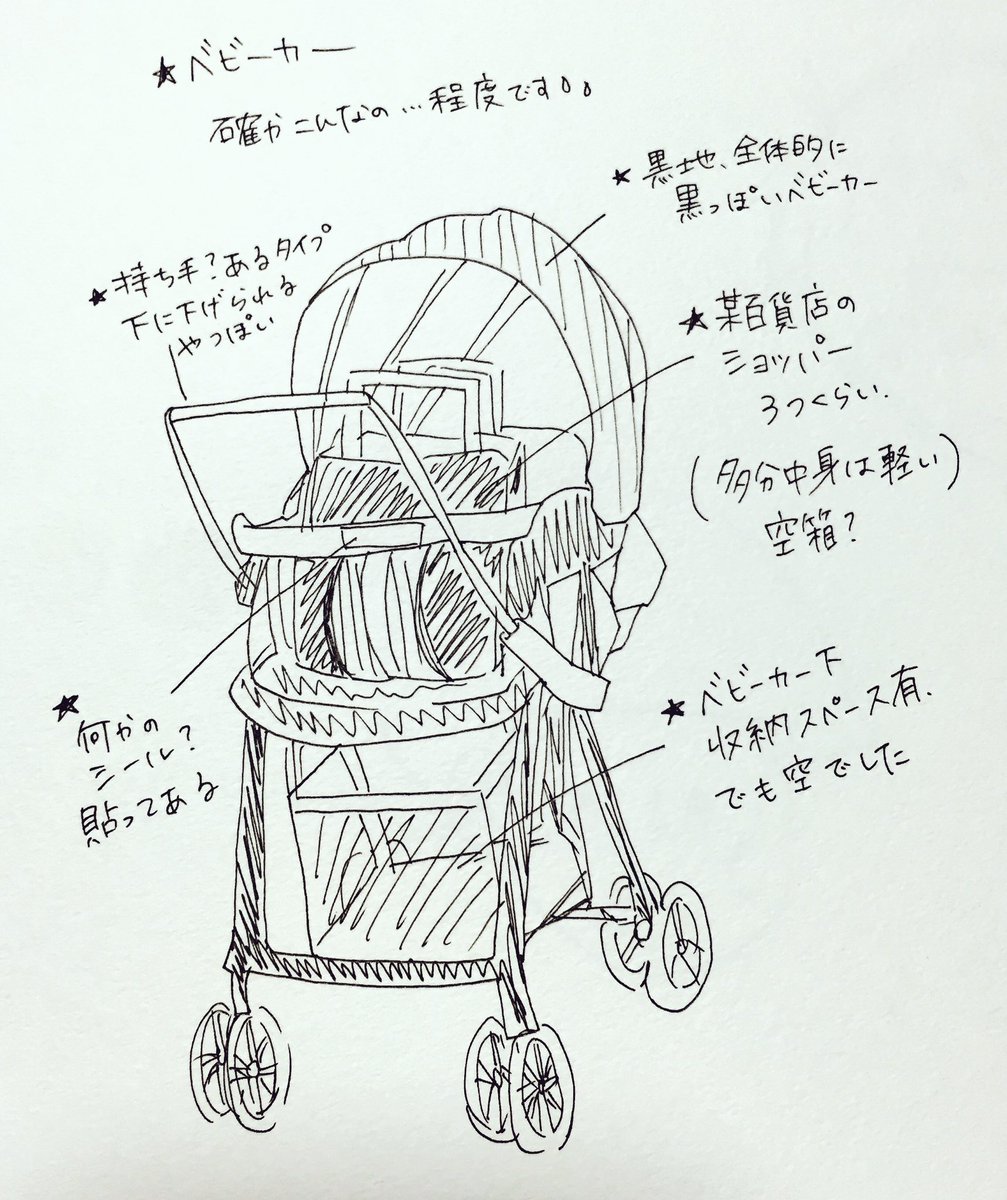 ★ベビーカー
確かこんなの…程度です
★黒地、全体的に
黒っぽいベビーカー
★持ち手?あるタイプ
下に下げられる
やつっぽい
★某百貨店の
ショッパー
3つくらい.
(多分中身は軽い)
空箱?
★何かの
シール?
貼ってある
★ベビーカー下
収納スペース有.
でも空でした